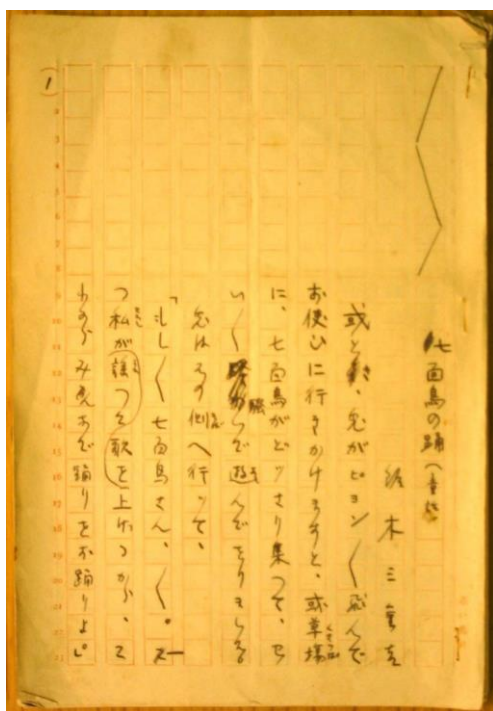 七面鳥の踊(童話)
鈴木三重吉
或とき、兎がピヨン〳〵飛んで
お使ひに行きかけますと、或草場
に、七面鳥がどつさり集つて、わ
い〳〵騒いで遊んでをりました
兎はその側へ行つて、
「もし〳〵七面鳥さん、〳〵。一
つ私が謡つて歌を上げるから、そ
みんなで踊りをお踊りよ。」
(1)